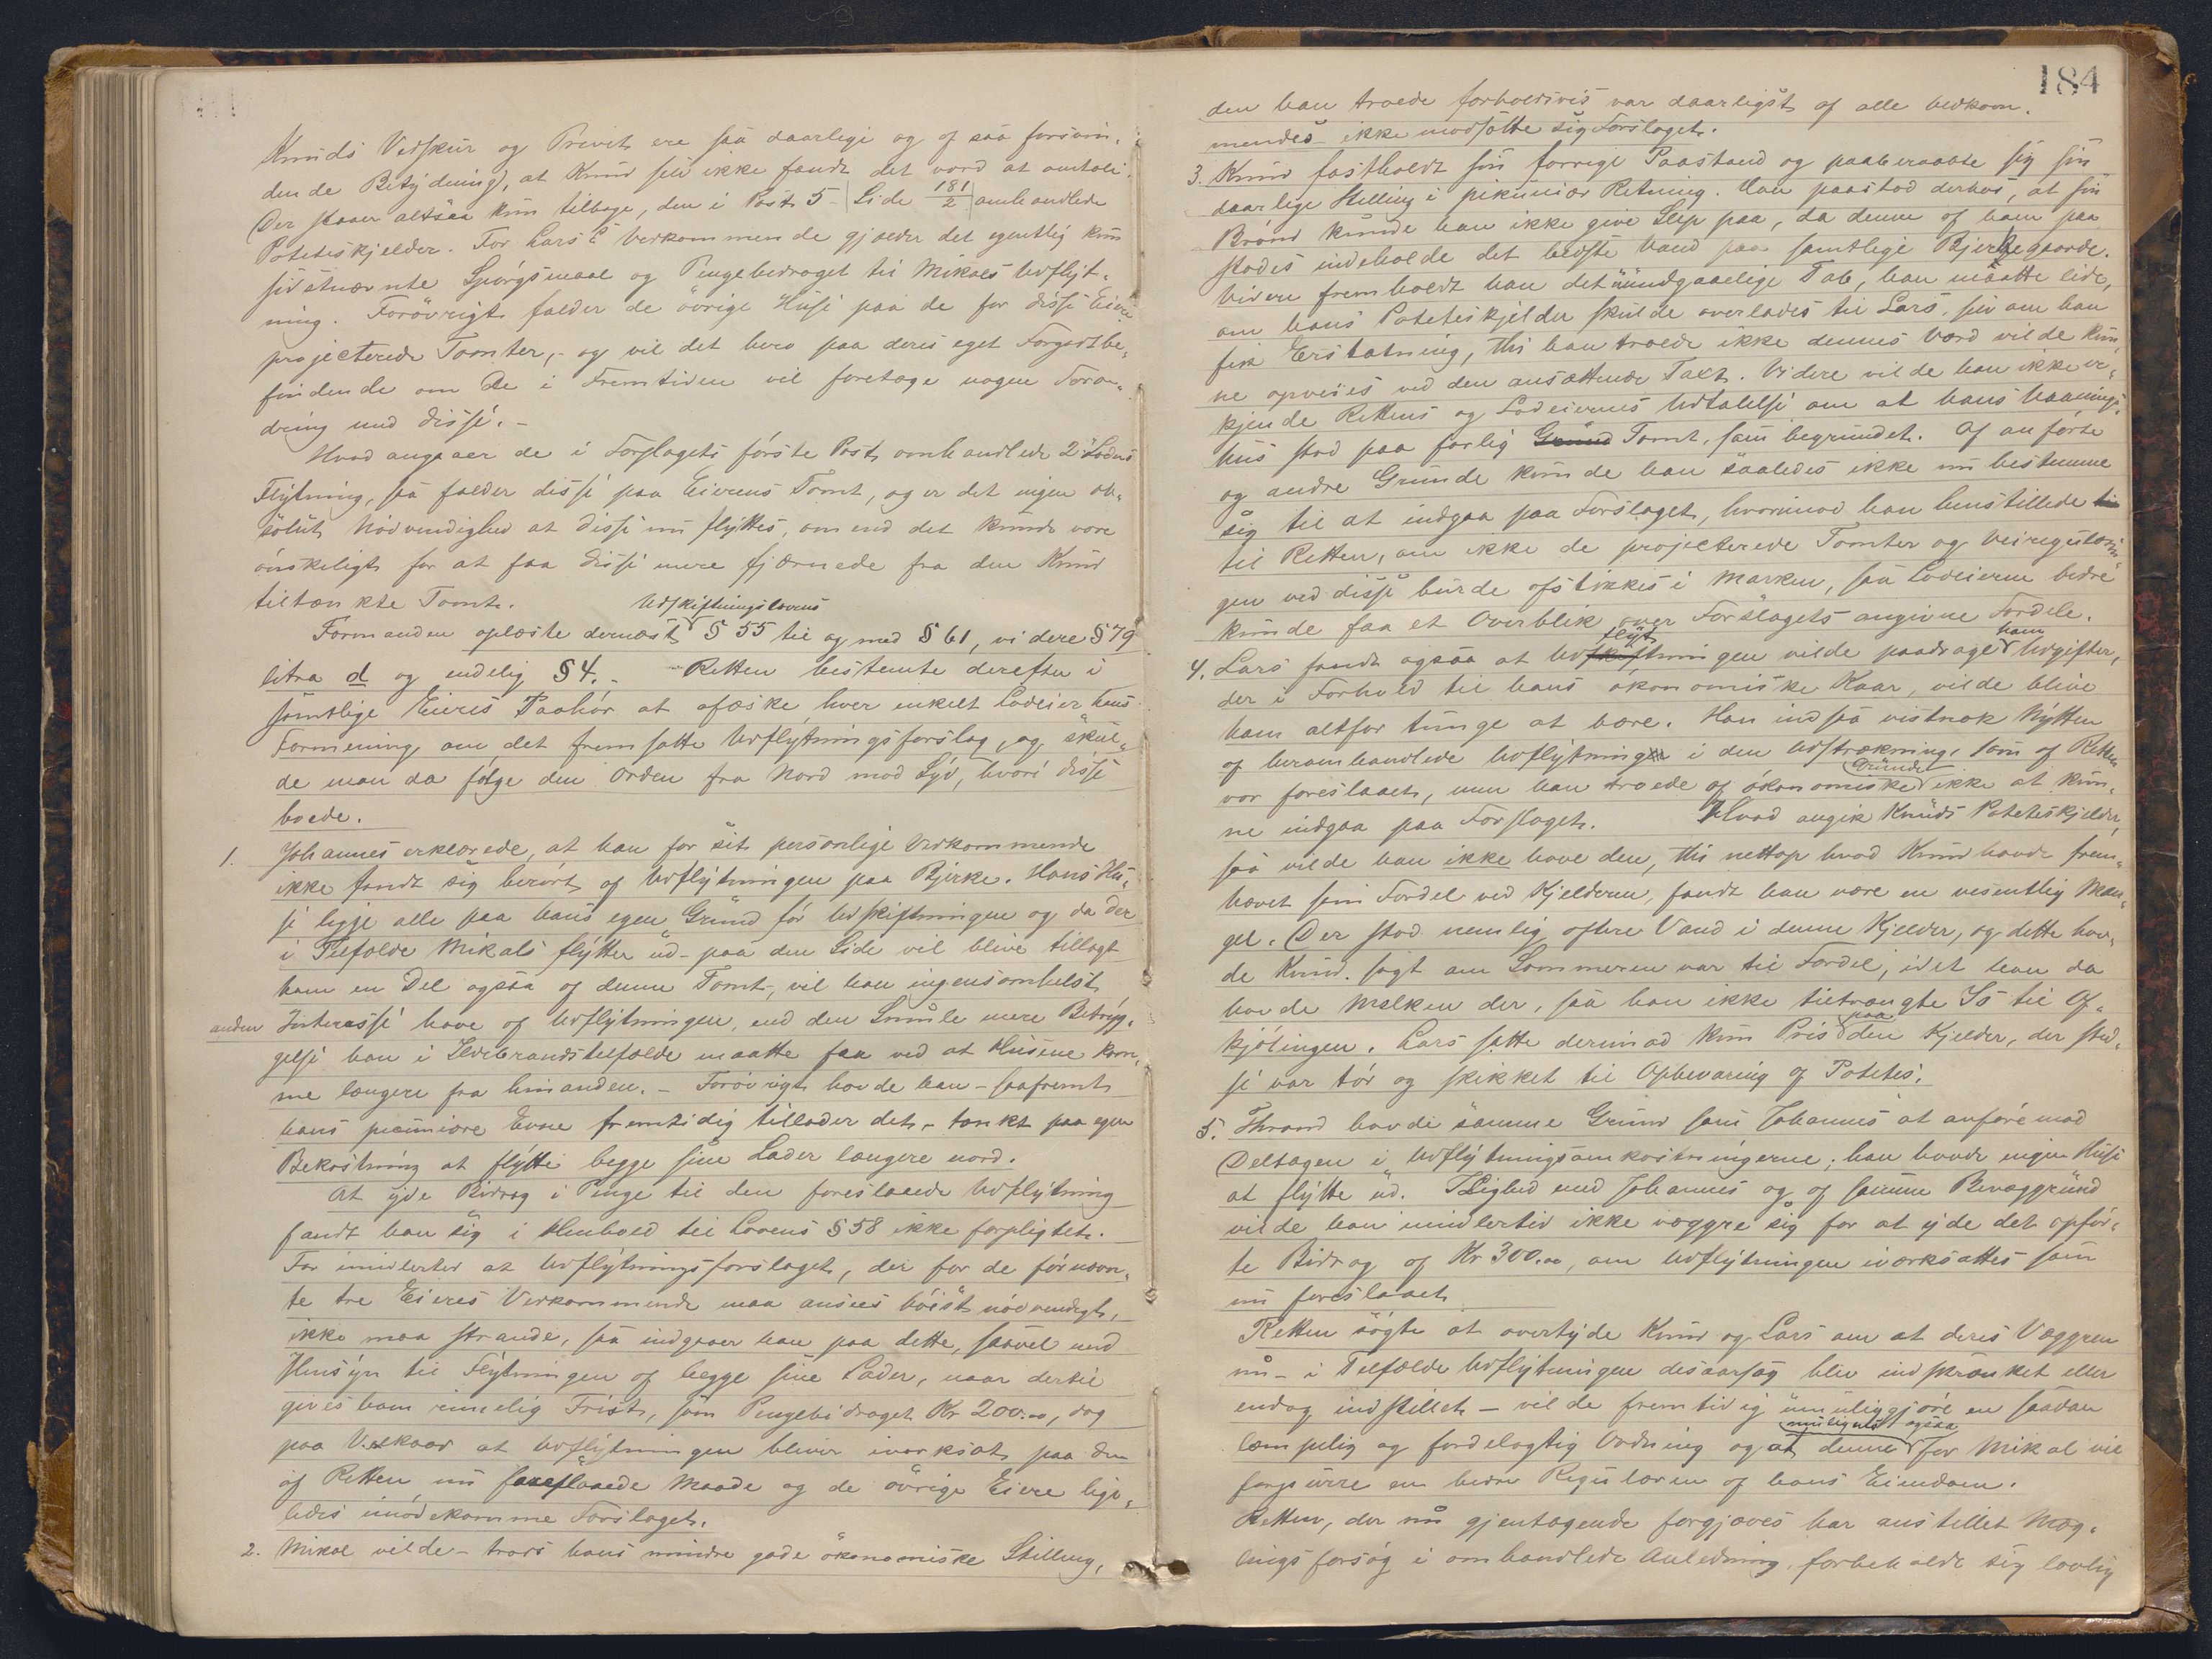 Knuds Vedskur og Privet ere saa daarlige og af saa forsvin-
dende Betydning), at Knud selv ikke fandt det værd at omtale.
Der staaer altsaa kun tilbage, den i Post 5 - Side 181/2 omhandlede
Potetiskjelder. For Lars's Vedkommende gjælder det egentlig kun
sidstnævnte Spørgsmaal og Pengebidraget til Mikals Udflyt-
ning. Forövrigt falder de övrige Huse paa de for disse Eiere
projecterede Tomter, - og vil det bero paa deres eget Forgodtbe-
findende om De i Fremtiden vil foretage nogen Foran-
dring med disse. -
Hvad angaaer de i Forslagets förste Post omhandlede 2 Laders
Flytning, saa falder disse paa Eierens Tomt, og er det ingen ab-
solut Nödvendighed at disse nu flyttes, om end det kunde være
önskeligt for at faa disse mere fjærnede fra den Knud
tiltænkte Tomt.
Formanden oplæste dernæst Udskiftningslovens § 55 til og med § 61, videre § 79
litra d og endelig § 4. - Retten bestemte derefter i
samtlige Eieres Paahör at afæske hver enkelt Lodeier hans
Formening om det fremsatte Udflytningsforslag, og skul-
de man da fölge den Orden fra Nord mod Syd, hvori disse
boede.
1. Johannes erklærede, at han for sit personlige Vedkommende
ikke fandt sig berört af Udflytningen paa Bjerke. Hans Hu-
se ligge alle paa hans egen Grund för Udskiftningen og da der
i Tilfælde Mikals flytter ud - paa den Side vil blive tillagt
ham en Del ogsaa af denne Tomt, vil han ingensomhelst
anden Interesse have af Udflytningen, end den Smule mere Betryg-
gelse han i Ildebrandstilfælde maatte faa ved at Husene kom-
me længere fra hinanden. - Forövrigt havde han - saafremt
hans pecuniære Evne fremtidig tillader det, - tænkt paa egen
Bekostning at flytte begge sine Lader længere nord.
At yde Bidrag i Penge til den foreslaaede Udflytning
fandt han sig i Henhold til Lovens § 58 ikke forpligtet.
For imidlertid at Udflytningsforslaget, der for de förnævn-
te tre Eieres Vedkommende maa ansees höist nödvendigt,
ikke maa strande, saa indgaaer han paa dette, saavel med
Hensyn til Flytningen af begge sine Lader, naar dertil
gives ham rimelig Frist, som Pengebidraget Kr 200.00, dog
paa Vilkaar at Udflytningen bliver iværksat paa den
af Retten nu foreslaaede Maade og de övrige Eiere lige-
ledes imödekomme Forslaget.
2. Mikal vilde - trods hans mindre gode ökonomiske Stilling,
184
den han troede forholdsvis var daarligst af alle Vedkom-
mendes - ikke modsætte sig Forslaget.
3. Knud fastholdt sin forrige Paastand og paaberaabte sig sin
daarlige Stilling i pekuniær Retning. Han paastod derhos, at sin
Brönd kunde han ikke give Slip paa, da denne af ham paa-
stodes indeholde det bedste Vand paa samtlige Bjerkegaarde.
Videre fremholdt han det uundgaaelige Tab, han maatte lide,
om hans Potetiskjelder skulde overlades til Lars, selv om han
fik Erstatning, thi han troede ikke dennes Værd vilde kun-
ne opveies ved den ansættende Taxt. Videre vilde han ikke er-
kjende Rettens og Lodeiernes Udtalelse om at hans Vaanings-
hus stod paa farlig Tomt, som begrundet. Af anförte
og andre Grunde kunde han saaledes ikke nu bestemme
sig til at indgaa paa Forslaget, hvorimod han henstillede
til Retten, om ikke de projecterede Tomter og Veireguleringen
ved disse burde afstikkes i Marken, saa Lodeierne bedre
kunde faa et Overblik over Forslagets angivne Fordele.
4. Lars fandt ogsaa at Udflytningen vilde paadrage ham Udgifter,
der i Forhold til hans ökonomiske Kaar, vilde blive
ham altfor tunge at bære. Han indsaa vistnok Nytten
af heromhandlede Udflytning i den Udstrækning, som af Retten
var foreslaaet, men han troede af ökonomiske Grunde ikke at kun-
ne indgaa paa Forslaget. Hvad angik Knuds Potetiskjelder,
saa vilde han ikke have den, thi nettop hvad Knud havde frem-
hævet som Fordel ved Kjelderen, fandt han være en væsentlig Man-
gel. Der stod nemlig oftere Vand i denne Kjelder, og dette hav-
de Knud sagt om Sommeren var til Fordel, idet han da
havde Melken der, saa han ikke tiltrængte Is til Af-
kjölingen. Lars satte derimod kun Pris paa den Kjelder, der sted-
se var tör og skikket til Opbevaring af Potetes.
5. Thrond havde samme Grund som Johannes at anföre mod
Deltagen i Udflytningsomkostningerne; han havde ingen Huse
at flytte ud. I Lighed med Johannes og af samme Bevæggrund
vilde han imidlertid ikke vægre sig for at yde det opför-
te Bidrag af Kr 300.00, om Udflytningen iværksattes som
nu foreslaaet.
Retten sögte at overtyde Knud og Lars om at deres Vægren
nu - i Tilfælde Udflytningen desaarsag blev indskrænket eller
endog indstillet - vilde fremtidig umuliggjöre en saadan
læmpelig og fordelagtig Ordning og at denne muligens ogsaa for Mikal vil
forpurre en bedre Regulæren af hans Eiendom.
Retten, der nu gjentagende forgjæves har anstillet Mæg-
lingsforsög i omhandlede Anledning, forbeholdt sig lovlig